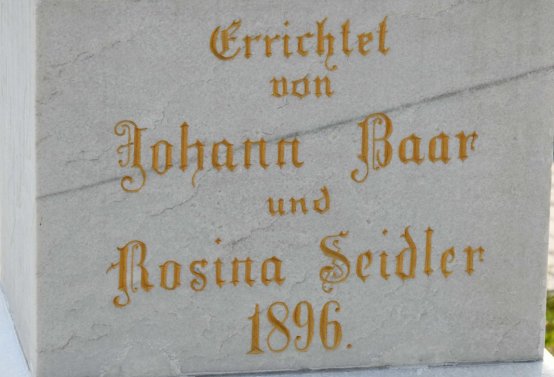 Errichtet
von
Johann Baar
und
Rosina Seidler
1896.